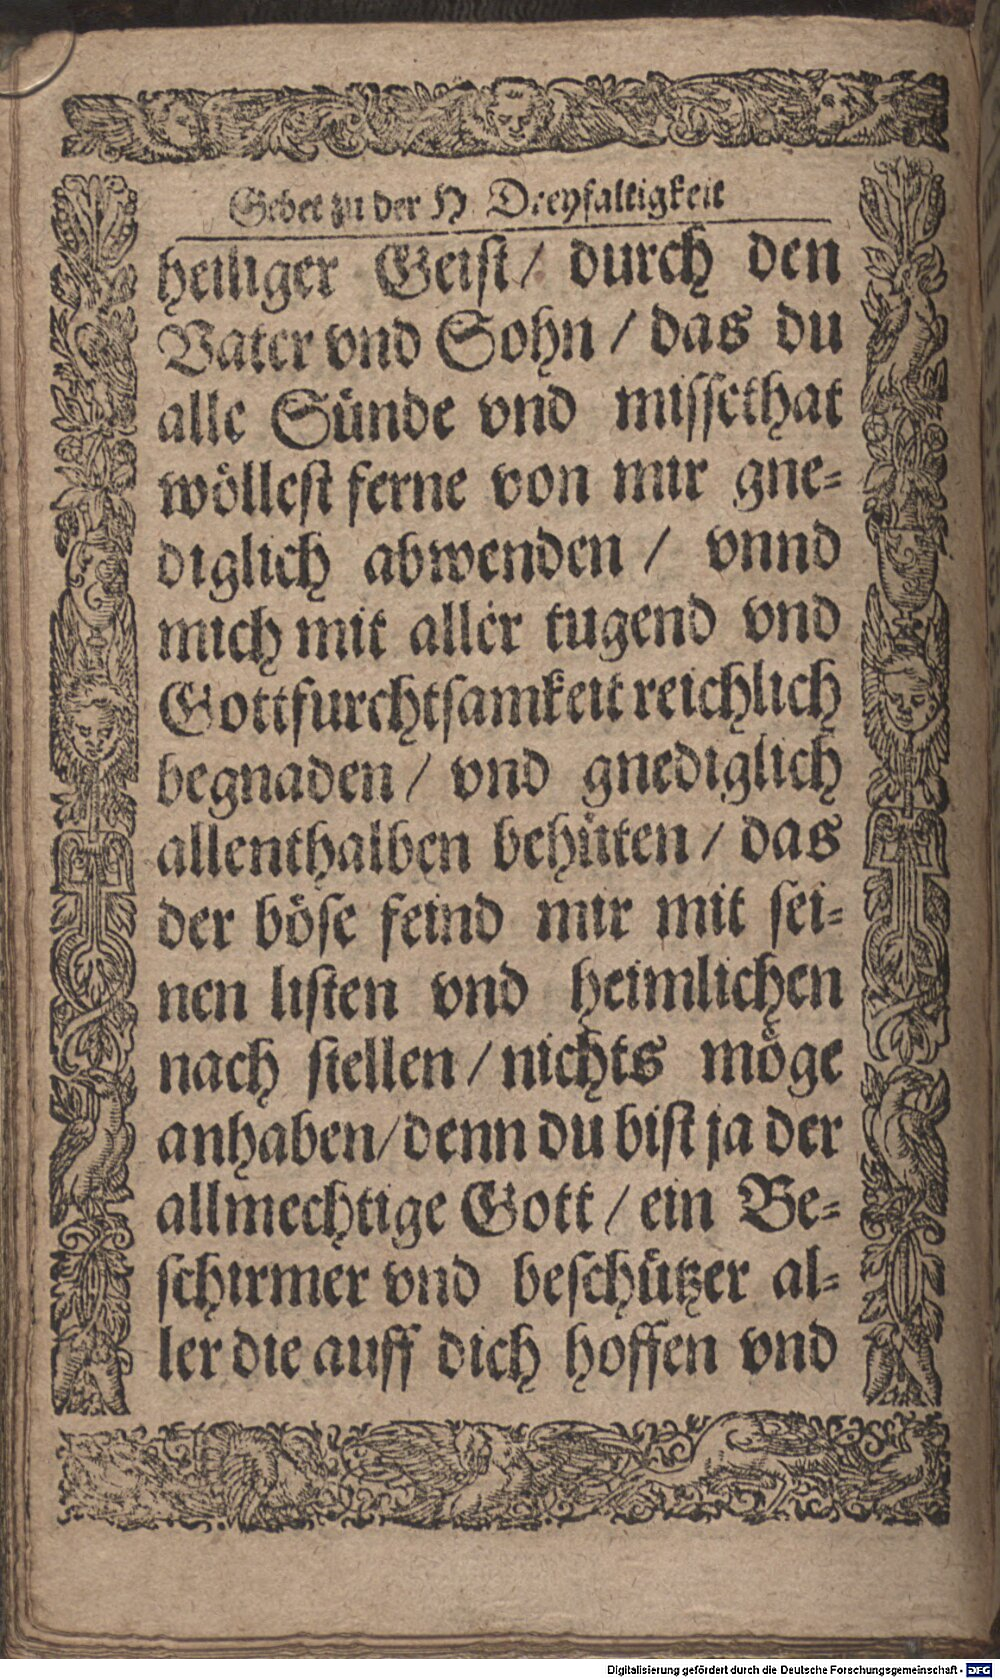 Gebet zu der H. Dreyfaltigkeit
heiliger Geist / durch den
Vater vnd Sohn / das du
alle Sünde vnd missethat
wöllest ferne von mir gne-
diglich abwenden / vnnd
mich mit aller tugend vnd
Gottfurchtsamkeit reichlich
begnaden / vnd gnediglich
allenthalben behüten / das
der böse feind mir mit sei-
nen listen vnd heimlichen
nach stellen / nichts möge
anhaben / denn du bist ja der
allmechtige Gott / ein Be-
schirmer vnd beschützer al-
ler die auff dich hoffen vnd
Digitalisierung gefördert durch die Deutsche Forschungsgemeinschaft - DFG